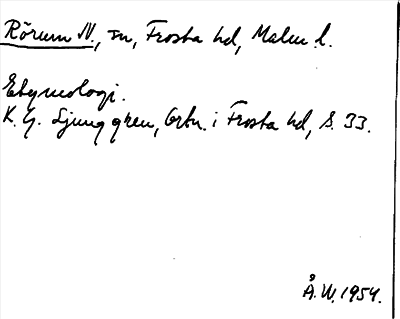 Rörum N., sn, Frosta hd, Malm. l.
Etymologi.
K. G. Ljunggren, Ortn. i Frosta hd, s. 33.
Å. W. 1954.